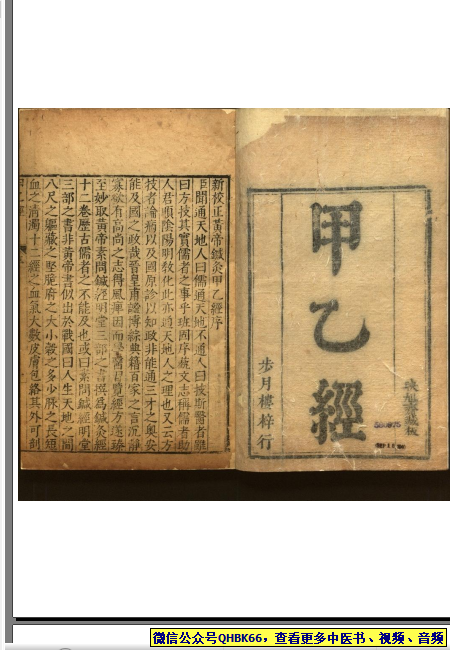 映旭齋藏板
甲乙經
步月樓梓行
新校正黃帝鍼灸甲乙經序
臣聞通天地人曰儒通天地不通人曰技斯醫者雖
曰方技其實儒者之事乎班固序藝文志稱儒者助
人君順陰陽明教化此亦通天地人之理也又云方
技者論病以及國原診以知政非能通三才之奧安
能及國之政哉晉皇甫謐博綜典籍百家之言沉靜
寡欲有高尚之志得風痺因而學醫習覽經方遂臻
至妙取黃帝素問鍼經明堂三部之書撰為鍼灸經
十二卷歷古儒者之不能及也或曰素問鍼經明堂
三部之書非黃帝書似出於戰國曰人生天地之間
八尺之軀藏之堅脆府之大小穀之多少脉之長短
血之清濁十二經之血氣大數皮膚包絡其外可剖
微信公众号QHBK66，查看更多中医书、视频、音频